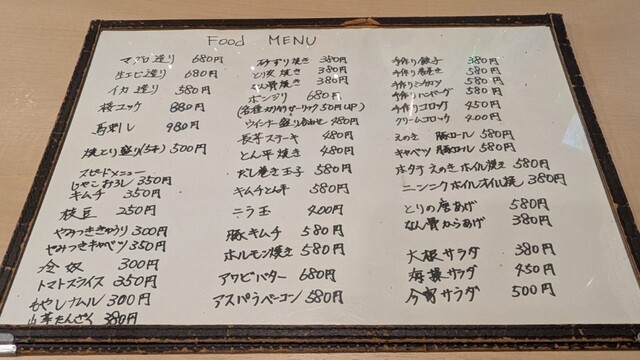 Food MENU
マグロ造り 680円
生エビ造り 680円
イカ造り 580円
桜ユッケ 880円
馬刺し 980円
焼とり盛り(5本) 500円
スピードメニュー
じゃこおろし 350円
キムチ 350円
枝豆 250円
やみつききゅうり 300円
やみつきキャベツ 350円
冷奴 300円
トマトスライス 350円
もやしナムル 300円
山芋たんざく 380円
砂ずり焼き 380円
とり皮焼き 380円
なん骨焼き 380円
ボンジリ 680円
(各種 ガーリック50円UP)
ウインナー盛り合わせ 480円
長芋ステーキ 480円
とん平焼き 480円
だし巻き玉子 580円
キムチとん平 580円
ニラ玉 400円
豚キムチ 580円
ホルモン焼き 580円
アワビバター 680円
アスパラベーコン 580円
手作り餃子 380円
手作り春巻き 580円
手作りミンチカツ 580円
手作りハンバーグ 580円
手作りコロッケ 450円
クリームコロッケ 400円
えのき豚ロール 580円
キャベツ豚ロール 580円
ホタテえのきホイル焼き 580円
ニンニクホイルオイル焼 380円
とりの唐あげ 580円
なん骨からあげ 380円
大根サラダ 380円
海藻サラダ 450円
今宵サラダ 500円